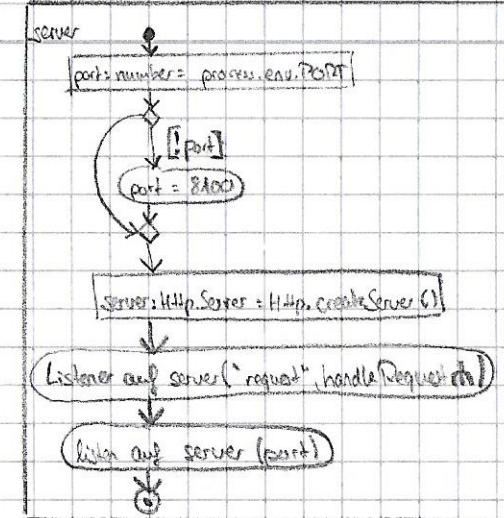 server
port: number = process.env.PORT
[!port]
port = 8100
server: Http.Server = Http.createServer()
Listener auf server("request", handleRequest)
listen auf server (port)